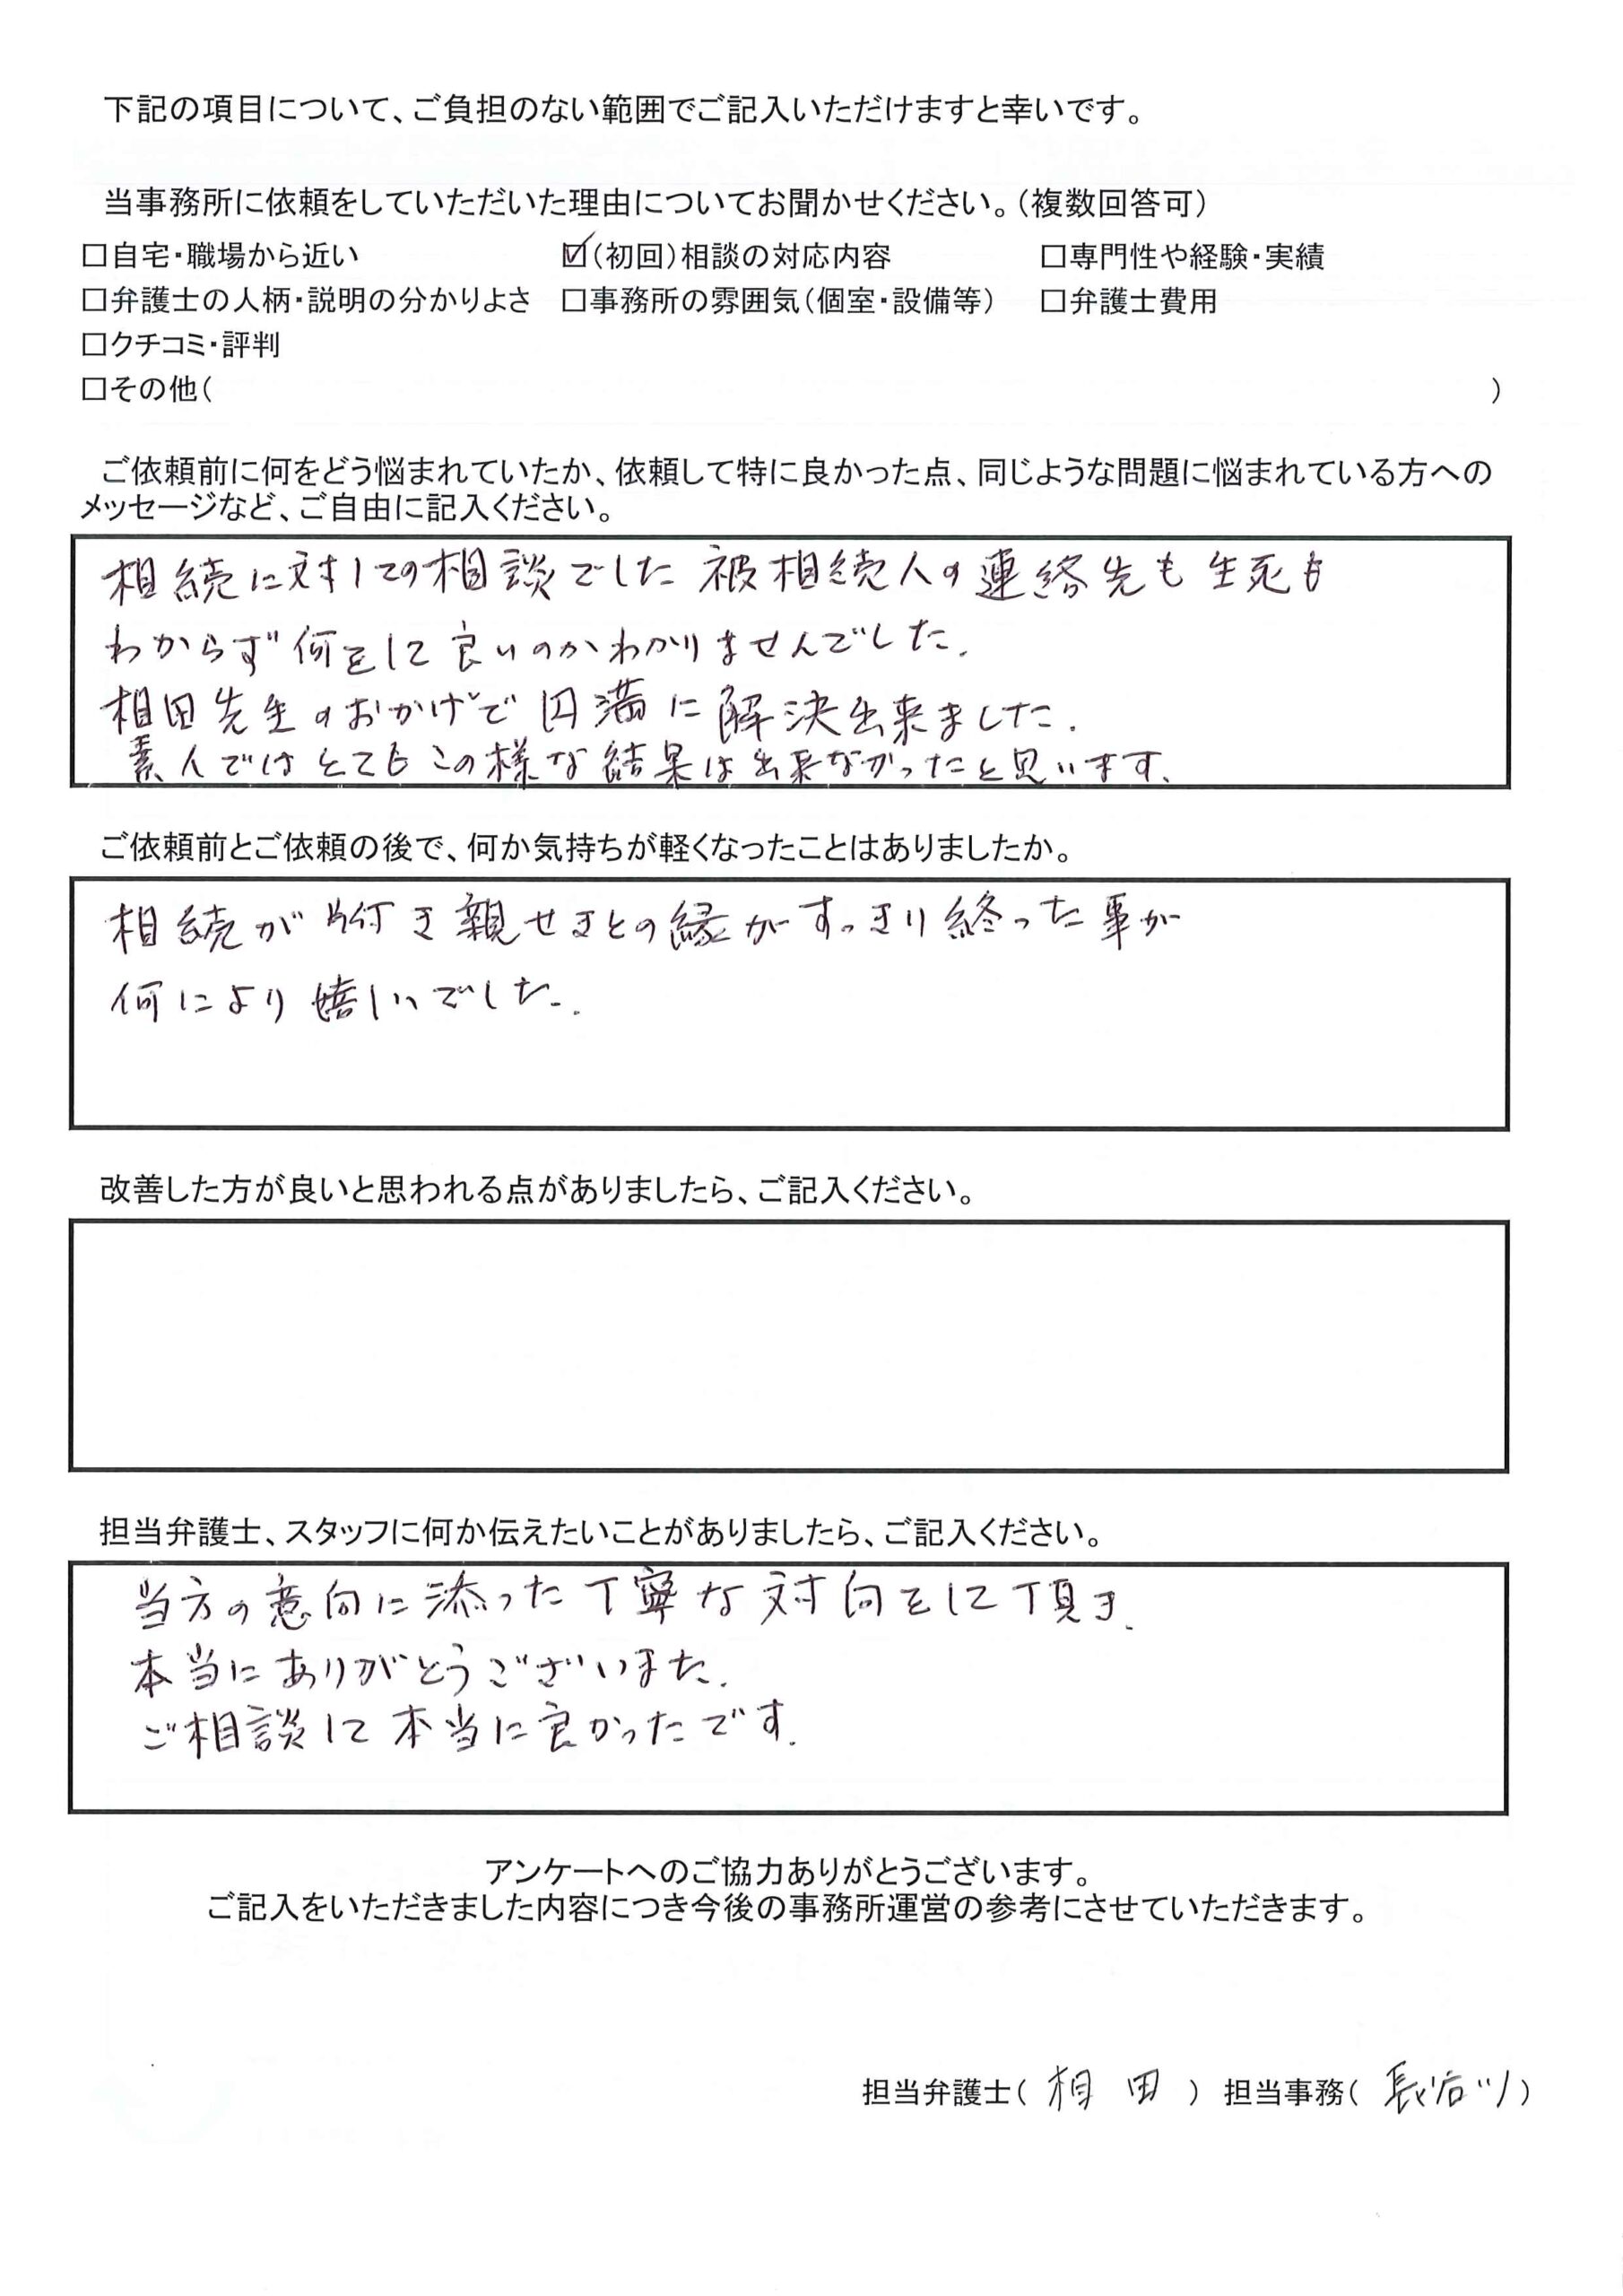 下記の項目について、ご負担のない範囲でご記入いただけますと幸いです。
当事務所に依頼をしていただいた理由についてお聞かせください。（複数回答可）
□自宅・職場から近い　☑（初回）相談の対応内容　□専門性や経験・実績
□弁護士の人柄・説明の分かりよさ　□事務所の雰囲気（個室・設備等）　□弁護士費用
□クチコミ・評判
□その他（　）
ご依頼前に何をどう悩まれていたか、依頼して特に良かった点、同じような問題に悩まれている方への
メッセージなど、ご自由に記入ください。
相続に対しての相談でした 被相続人の連絡先も生死も
わからず何をして良いのかわかりませんでした.
相田先生のおかげで円満に解決出来ました.
素人ではとてもこの様な結果は出来なかったと思います.
ご依頼前とご依頼の後で、何か気持ちが軽くなったことはありましたか。
相続が片付き親せきとの縁がすっきり終った事が
何により嬉しいでした.
改善した方が良いと思われる点がありましたら、ご記入ください。
担当弁護士、スタッフに何か伝えたいことがありましたら、ご記入ください。
当方の意向に添った丁寧な対向をして頂き.
本当にありがとうございまた.
ご相談して本当に良かったです.
アンケートへのご協力ありがとうございます。
ご記入をいただきました内容につき今後の事務所運営の参考にさせていただきます。
担当弁護士（ 相田 ） 担当事務（ 長谷川 ）